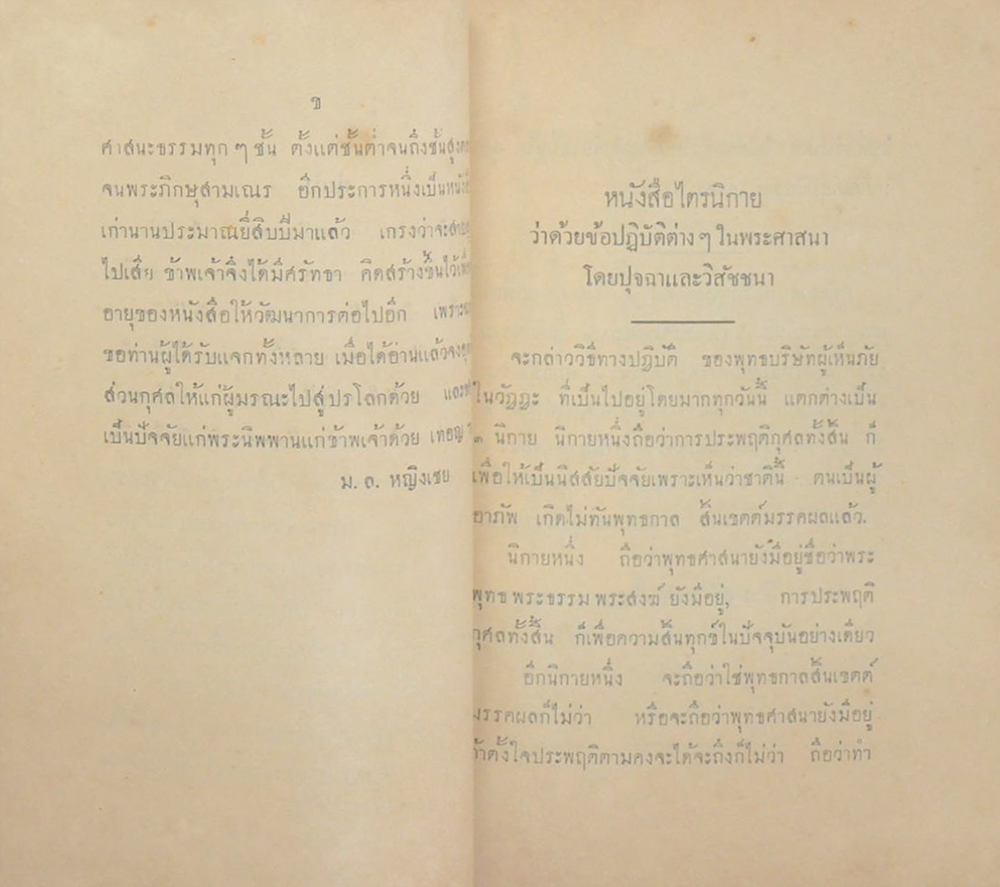 ข
ศาสนะธรรมทุก ๆ ชั้น ตั้งแต่ชั้นต่ำจนถึงชั้นสูง
จนพระภิกษุสามเณร อีกประการหนึ่งเป็น
เก่านานประมาณยี่สิบปีมาแล้ว เกรงว่าจะ
ไปเสีย ข้าพเจ้าจึงได้มีศรัทธา คิดสร้างขึ้นไว้
อายุของหนังสือให้วัฒนาการต่อไปอีก เพราะ
ขอท่านผู้ได้รับแจกทั้งหลาย เมื่อได้อ่านแล้วจง
ส่วนกุศลให้แก่ผู้มรณะไปสู่ปรโลกด้วย และ
เป็นปัจจัยแก่พระนิพพานแก่ข้าพเจ้าด้วย เทอญ
ม. ล. หญิงเชย
หนังสือไตรนิกาย
ว่าด้วยข้อปฏิบัติต่าง ๆ ในพระศาสนา
โดยปุจฉาและวิสัชชนา
จะกล่าววิธีทางปฏิบัติ ของพุทธบริษัทผู้เห็นภัย
ในวัฏฏะ ที่เป็นไปอยู่โดยมากทุกวันนี้ แตกต่างเป็น
๓ นิกาย นิกายหนึ่งถือว่าการประพฤติกุศลทั้งสิ้น ก็
เพื่อให้เป็นนิสสัยปัจจัยเพราะเห็นว่าชาตินี้ ตนเป็นผู้
อาภัพ เกิดไม่ทันพุทธกาล สิ้นเขตต์มรรคผลแล้ว.
นิกายหนึ่ง ถือว่าพุทธศาสนายังมีอยู่ชื่อว่าพระ
พุทธ พระธรรม พระสงฆ์ ยังมีอยู่, การประพฤติ
กุศลทั้งสิ้น ก็เพื่อความสิ้นทุกข์ในปัจจุบันอย่างเดียว
อีกนิกายหนึ่ง จะถือว่าใช่พุทธกาลสิ้นเขตต์
มรรคผลก็ไม่ว่า หรือจะถือว่าพุทธศาสนายังมีอยู่
ถ้าตั้งใจประพฤติตามคงจะได้จะถึงก็ไม่ว่า ถือว่าทำ